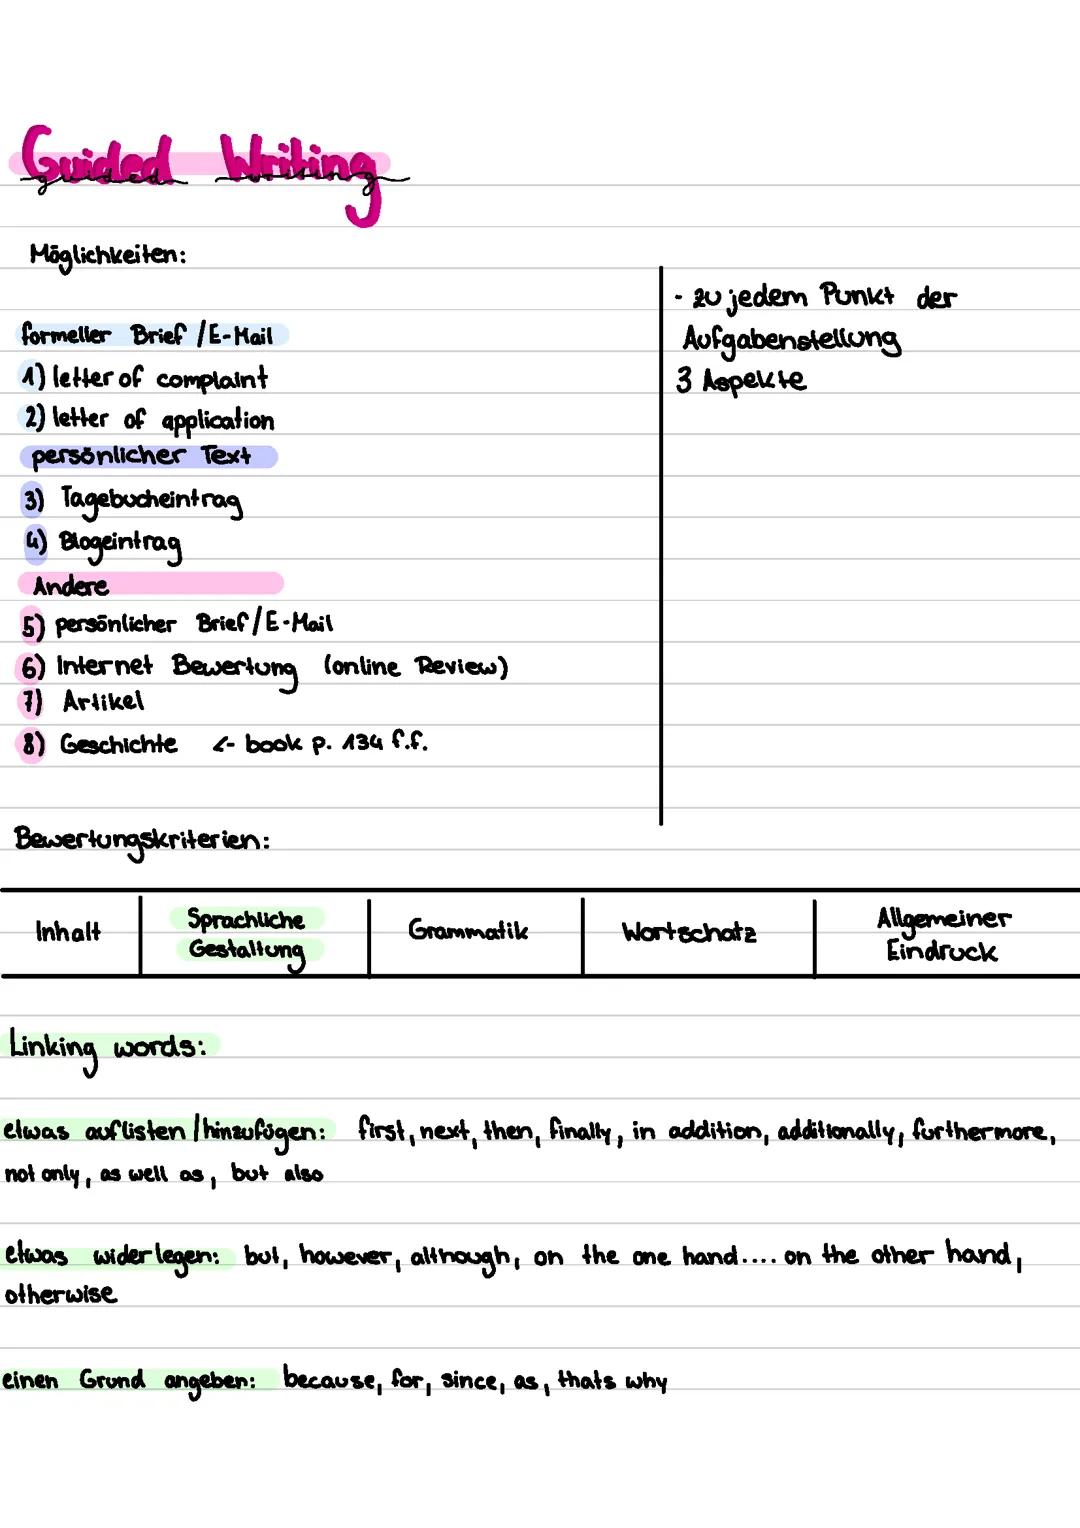 Guided Writing
guided writing
Möglichkeiten:
formeller Brief / E-Mail
1) letter of complaint
2) letter of application
persönlicher Text
3) Tagebucheintrag
4) Blogeintrag
Andere
5) persönlicher Brief / E-Mail
6) Internet Bewertung (online Review)
7) Artikel
8) Geschichte <- book p. 134 f.f.
- zu jedem Punkt der
Aufgabenstellung
3 Aspekte
Bewertungskriterien:
Inhalt
Sprachliche
Gestaltung
Grammatik
Wortschatz
Allgemeiner
Eindruck
Linking words:
etwas auflisten / hinzufügen: first, next, then, finally, in addition, additionally, furthermore,
not only, as well as, but also
etwas widerlegen: but, however, although, on the one hand.... on the other hand,
otherwise
einen Grund angeben: because, for, since, as, thats why